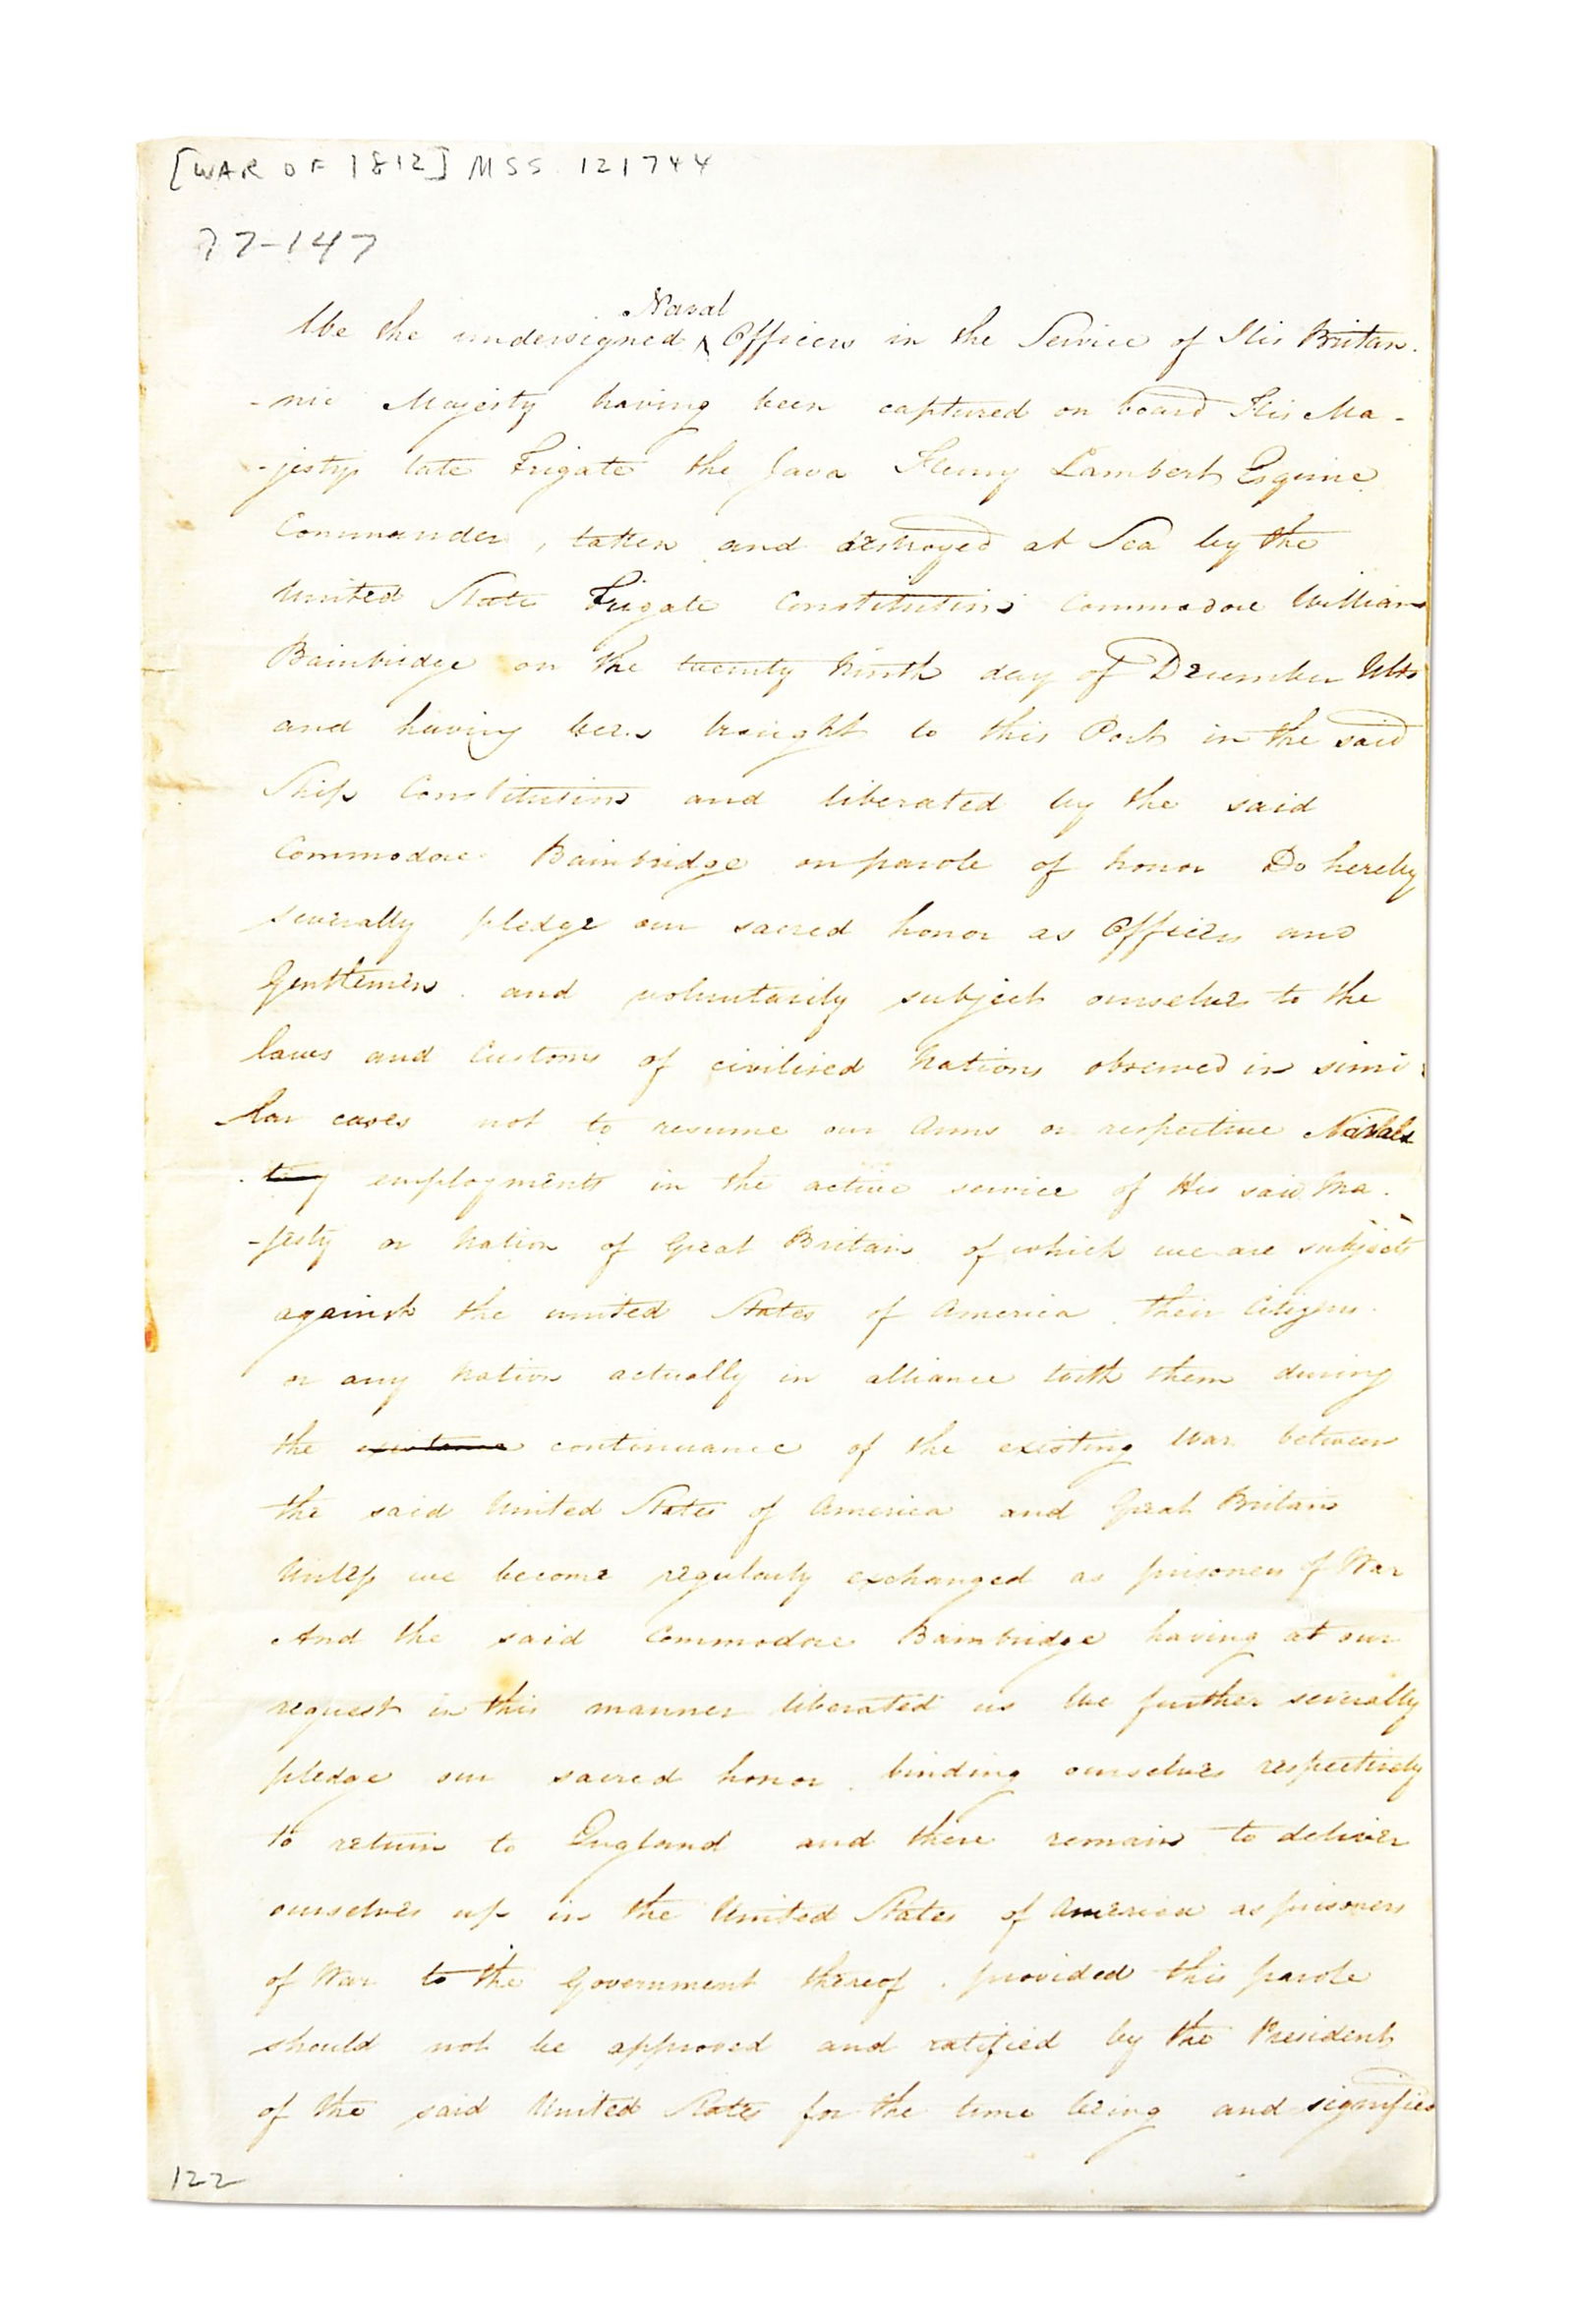 [WAR OF 1812] MSS 121744
77-147
Naval
We the undersigned ^ Officers in the Service of His Britan-
-nic Majesty having been captured on board His Ma-
-jestys late Frigate the Java Henry Lambert Esquire
Commander, taken and destroyed at Sea by the
United State Frigate Constitution Commodore William
Bainbridge on the twenty Ninth day of December Ulto
and having been brought to this Port in the said
Ship Constitution and liberated by the said
Commodore Bainbridge on parole of honor Do hereby
severally pledge our sacred honor as Officers and
Gentlemen and voluntarily subject ourselves to the
laws and Customs of civilised Nations observed in simi-
-lar cases not to resume our Arms or respective
employments in the active service of His said Ma-
-jesty or Nation of Great Britain of which we are subjects
against the united States of America their Citizens
or any Nation actually in alliance with them during
the existence continuance of the existing War between
the said United States of America and Great Britain
Unless we become regularly exchanged as prisoners of War
And the said Commodore Bainbridge having at our
request in this manner liberated us We further severally
pledge our sacred honor binding ourselves respectively
to return to England and there remain to deliver
ourselves up in the United States of America as prisoners
of War to the Government thereof provided this parole
should not be approved and ratified by the President
of the said United States for the time being and signified
122